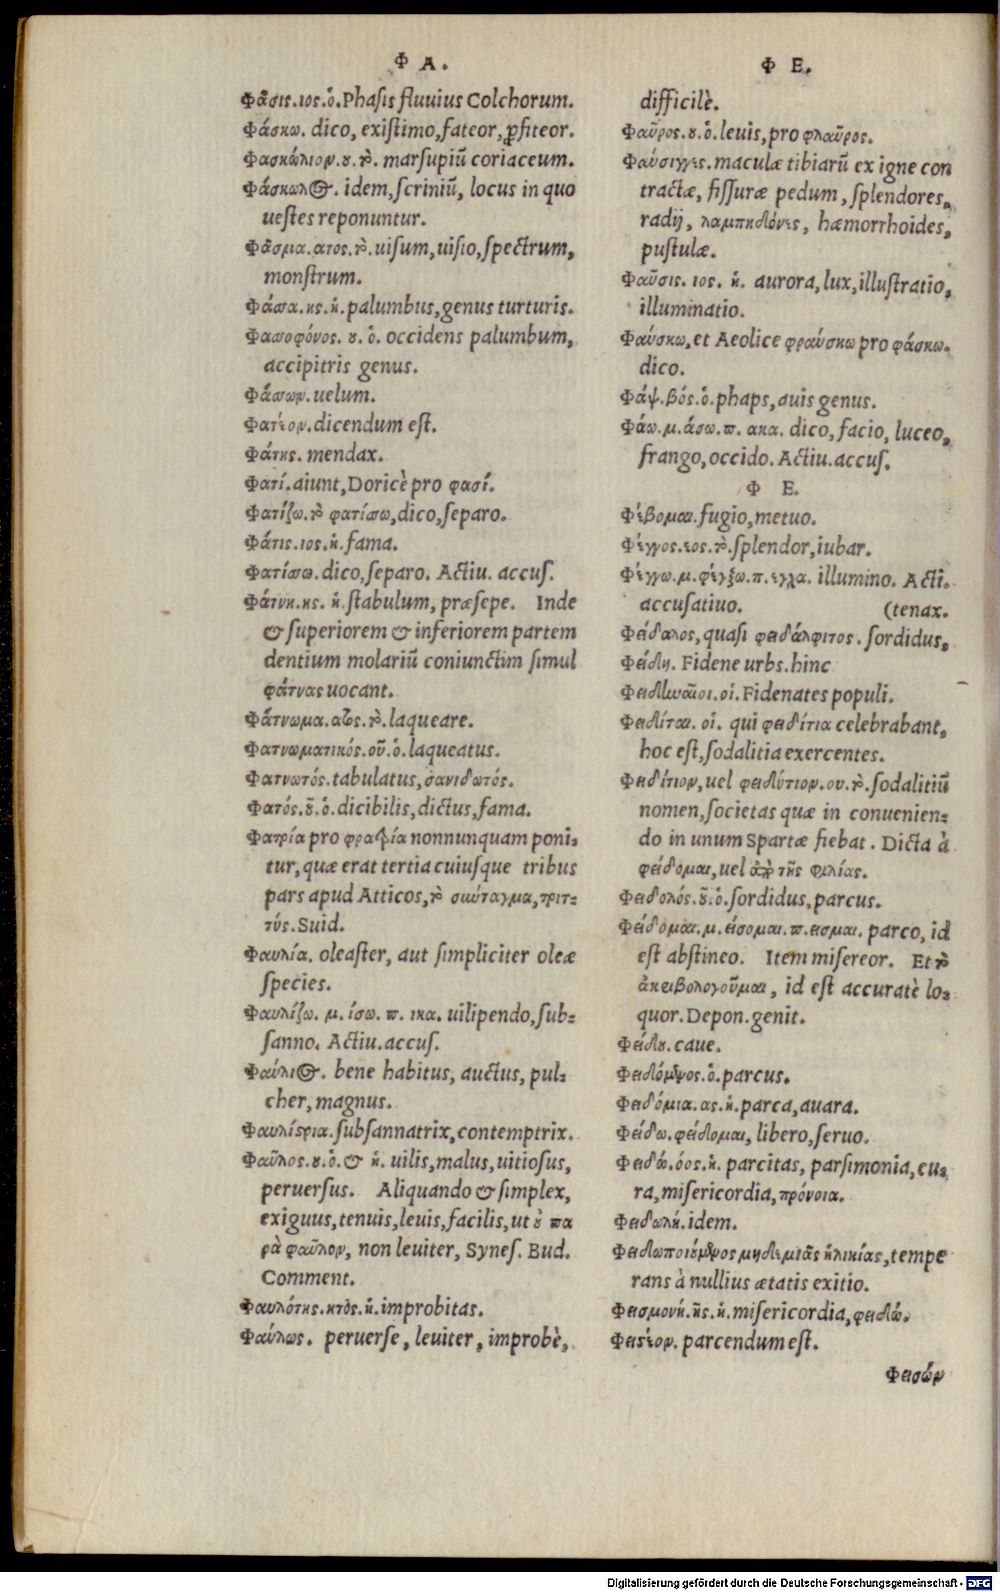 Φ Α.
Φᾶσις.ιος.ὁ.Phasis fluuius Colchorum.
Φάσκω. dico, existimo, fateor, ꝓfiteor.
Φασκώλιον.ου.τὸ. marsupiū coriaceum.
Φάσκωλος. idem, scriniū, locus in quo
uestes reponuntur.
Φᾶσμα.ατος.τὸ.uisum, uisio, spectrum,
monstrum.
Φάσσα.ης.ἡ.palumbus, genus turturis.
Φασσοφόνος.ου.ὁ. occidens palumbum,
accipitris genus.
Φάσσων.uelum.
Φατέον.dicendum est.
Φάτης. mendax.
Φατί.aiunt, Doricè pro φασί.
Φατίζω.τὸ φατίσσω, dico, separo.
Φάτις.ιος.ἡ.fama.
Φατίσσω.dico, separo. Actiu. accus.
Φάτνη.ης. ἡ.stabulum, præsepe. Inde
& superiorem & inferiorem partem
dentium molariū coniunctim simul
φάτνας uocant.
Φάτνωμα.ατος.τὸ.laqueare.
Φατνωματικός.οῦ.ὁ.laqueatus.
Φατνωτός.tabulatus, σανιδωτός.
Φατός.οῦ.ὁ.dicibilis, dictus, fama.
Φατρία pro φρατρία nonnunquam poni-
tur, quæ erat tertia cuiusque tribus
pars apud Atticos, τὸ σύνταγμα, τριτ-
τύς.Suid.
Φαυλία. oleaster, aut simpliciter oleæ
species.
Φαυλίζω. μ. ίσω. π. ικα. uilipendo, sub-
sanno. Actiu. accus.
Φαύλιος. bene habitus, auctus, pul-
cher, magnus.
Φαυλίστρια.subsannatrix, contemptrix.
Φαῦλος.ου.ὁ.& ἡ. uilis, malus, uitiosus,
peruersus. Aliquando & simplex,
exiguus, tenuis, leuis, facilis, ut οὐ πα
ρὰ φαῦλον, non leuiter, Synes. Bud.
Comment.
Φαυλότης.ητος.ἡ.improbitas.
Φαύλως. peruerse, leuiter, improbè,
Φ Ε.
difficilè.
Φαῦρος.ου.ὁ.leuis, pro φλαῦρος.
Φαύσιγγες.maculæ tibiarū ex igne con
tractæ, fissuræ pedum, splendores,
radij, λαμπηδόνες, hæmorrhoides,
pustulæ.
Φαῦσις. ιος. ἡ. aurora, lux, illustratio,
illuminatio.
Φαύσκω, et Aeolice φραύσκω pro φάσκω.
dico.
Φάψ.βός.ὁ.phaps, auis genus.
Φάω.μ.άσω.π. ακα. dico, facio, luceo,
frango, occido. Actiu.accus.
Φ Ε.
Φέβομαι.fugio, metuo.
Φέγγος.εος.τὸ.splendor, iubar.
Φέγγω.μ.φέγξω.π.εγχα. illumino. Acti.
accusatiuo. (tenax.
Φείδαλος, quasi φειδάλφιτος. sordidus,
Φείδη. Fidene urbs.hinc
Φειδηναῖοι.οἱ.Fidenates populi.
Φειδίται. οἱ. qui φειδίτια celebrabant,
hoc est, sodalitia exercentes.
Φειδίτιον, uel φειδύτιον.ου.τὸ.sodalitiū
nomen, societas quæ in conuenien-
do in unum Spartæ fiebat. Dicta à
φείδομαι, uel ἀπὸ τῆς φιλίας.
Φειδολός.οῦ.ὁ.sordidus, parcus.
Φείδομαι.μ.είσομαι.π.εισμαι. parco, id
est abstineo. Item misereor. Et τὸ
ἀκριβολογοῦμαι, id est accuratè lo-
quor.Depon.genit.
Φείδου.caue.
Φειδόμενος.ὁ.parcus.
Φειδόμια.ας.ἡ.parca, auara.
Φείδω.φείδομαι, libero, seruo.
Φειδώ.όος.ἡ. parcitas, parsimonia, cu-
ra, misericordia, πρόνοια.
Φειδωλή.idem.
Φειδωποιούμενος μηδεμιᾶς ἡλικίας, tempe
rans à nullius ætatis exitio.
Φεισμονή.ῆς.ἡ.misericordia, φειδώ.
Φειστέον. parcendum est.
Φεισών
Digitalisierung gefördert durch die Deutsche Forschungsgemeinschaft - DFG